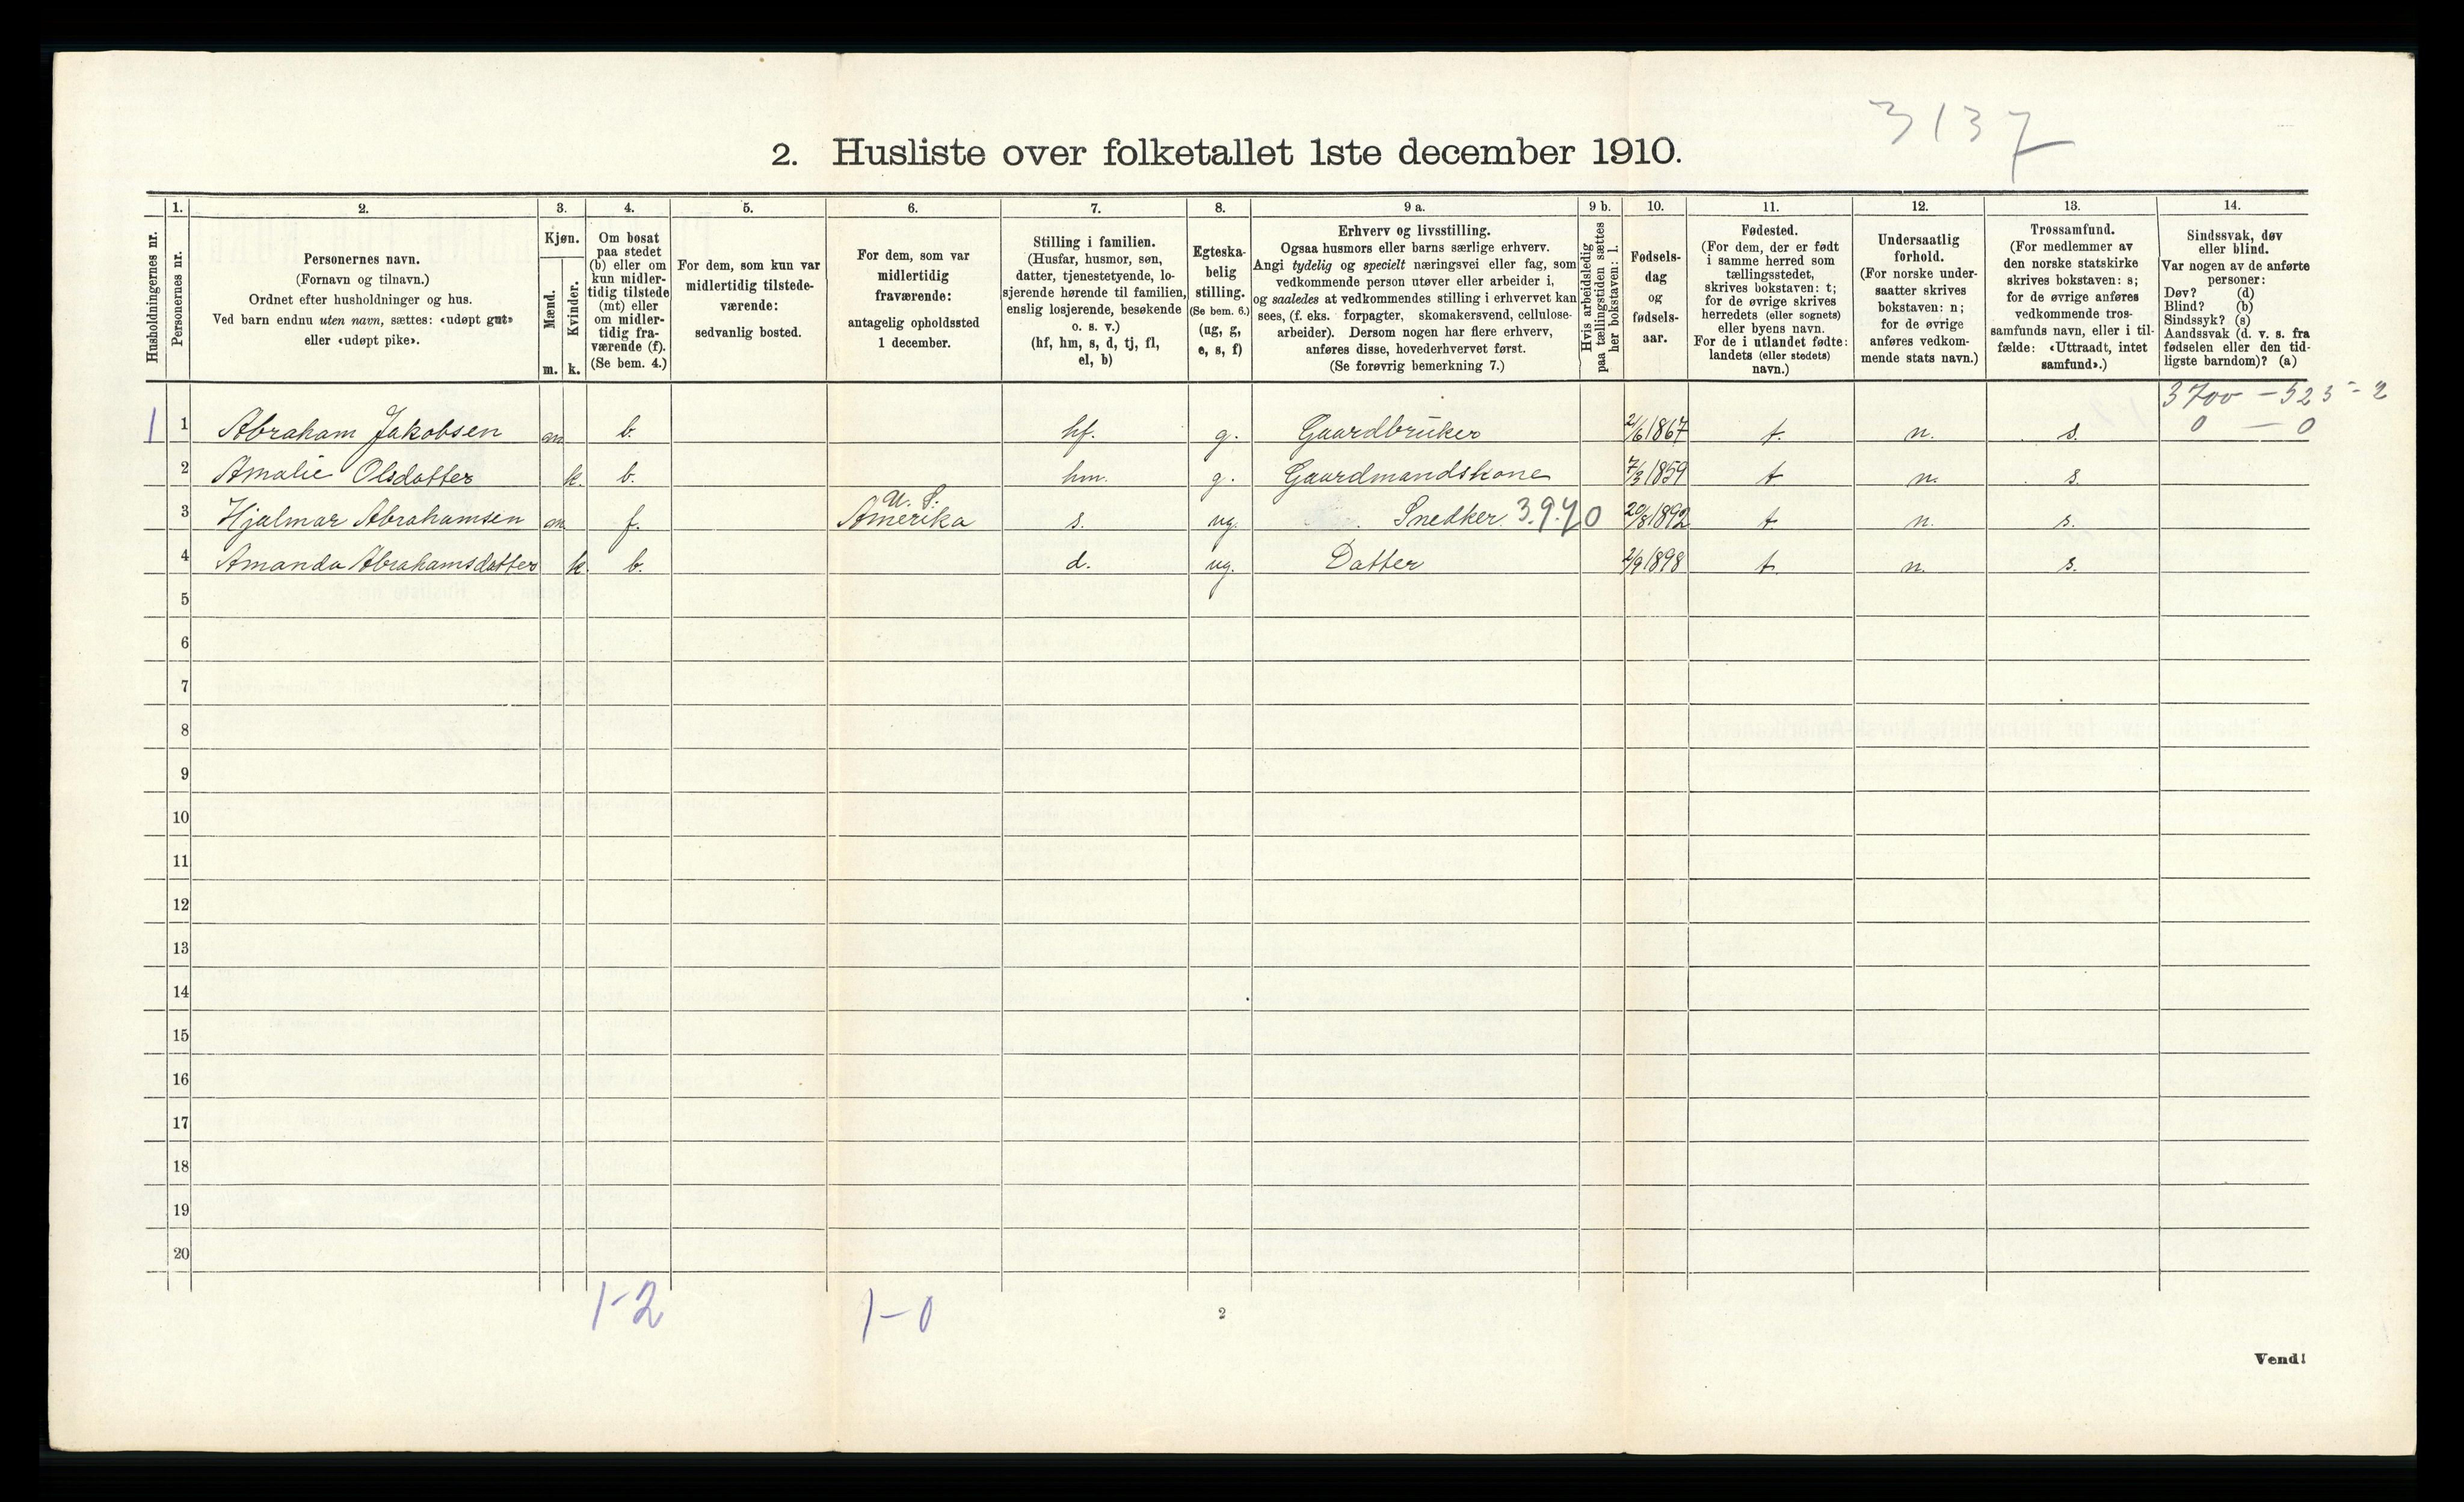 3137
2. Husliste over folketallet 1ste december 1910.
1. 2. 3. 4. 5. 6. 7. 8. 9 a. 9 b. 10. 11. 12. 13. 14.
Husholdningernes nr.
Personernes nr.
Personernes navn.
(Fornavn og tilnavn.)
Ordnet efter husholdninger og hus.
Ved barn endnu uten navn, sættes: «udøpt gut»
eller «udøpt pike».
Kjøn.
Mænd.
Kvinder.
m. k.
Om bosat
paa stedet
(b) eller om
kun midler-
tidig tilstede
(mt) eller
om midler-
tidig fra-
værende (f).
(Se bem. 4.)
For dem, som kun var
midlertidig tilstede-
værende:
sedvanlig bosted.
For dem, som var
midlertidig
fraværende:
antagelig opholdssted
1 december.
Stilling i familien.
(Husfar, husmor, søn,
datter, tjenestetyende, lo-
sjerende hørende til familien,
enslig losjerende, besøkende
o. s. v.)
(hf, hm, s, d, tj, fl,
el, b)
Egteska-
belig
stilling.
(Se bem. 6.)
(ug, g,
e, s, f)
Erhverv og livsstilling.
Ogsaa husmors eller barns særlige erhverv.
Angi tydelig og specielt næringsvei eller fag, som
vedkommende person utøver eller arbeider i,
og saaledes at vedkommendes stilling i erhvervet kan
sees, (f. eks. forpagter, skomakersvend, cellulose-
arbeider). Dersom nogen har flere erhverv,
anføres disse, hovederhvervet først.
(Se forøvrig bemerkning 7.)
Hvis arbeidsledig
paa tællingstiden sættes
her bokstaven: l.
Fødsels-
dag
og
fødsels-
aar.
Fødested.
(For dem, der er født
i samme herred som
tællingsstedet,
skrives bokstaven: t;
for de øvrige skrives
herredets (eller sognets)
eller byens navn.
For de i utlandet fødte:
landets (eller stedets)
navn.)
Undersaatlig
forhold.
(For norske under-
saatter skrives
bokstaven: n;
for de øvrige
anføres vedkom-
mende stats navn.)
Trossamfund.
(For medlemmer av
den norske statskirke
skrives bokstaven: s;
for de øvrige anføres
vedkommende tros-
samfunds navn, eller i til-
fælde: «Uttraadt, intet
samfund».)
Sindssvak, døv
eller blind.
Var nogen av de anførte
personer:
Døv? (d)
Blind? (b)
Sindssyk? (s)
Aandssvak (d. v. s. fra
fødselen eller den tid-
ligste barndom)? (a)
3700 - 525 - 2
1 1 Abraham Jakobsen m b. hf. g. Gaardbruker 2/6 1867 t. n. s. 0 - 0
2 Amalie Olsdatter k. b. hm. g. Gaardmandskone 7/3 1859 t n. s.
U. S.
3 Hjalmar Abrahamsen m f. Amerika s. ug. Snedker 3.9.40 20/8 1892 t. n. s.
4 Amanda Abrahamsdatter k. b. d. ug. Datter 2/9 1898 t. n. s.
5
6
7
8
9
10
11
12
13
14
15
16
17
18
19
20
1-2 1-0
2
Vend!